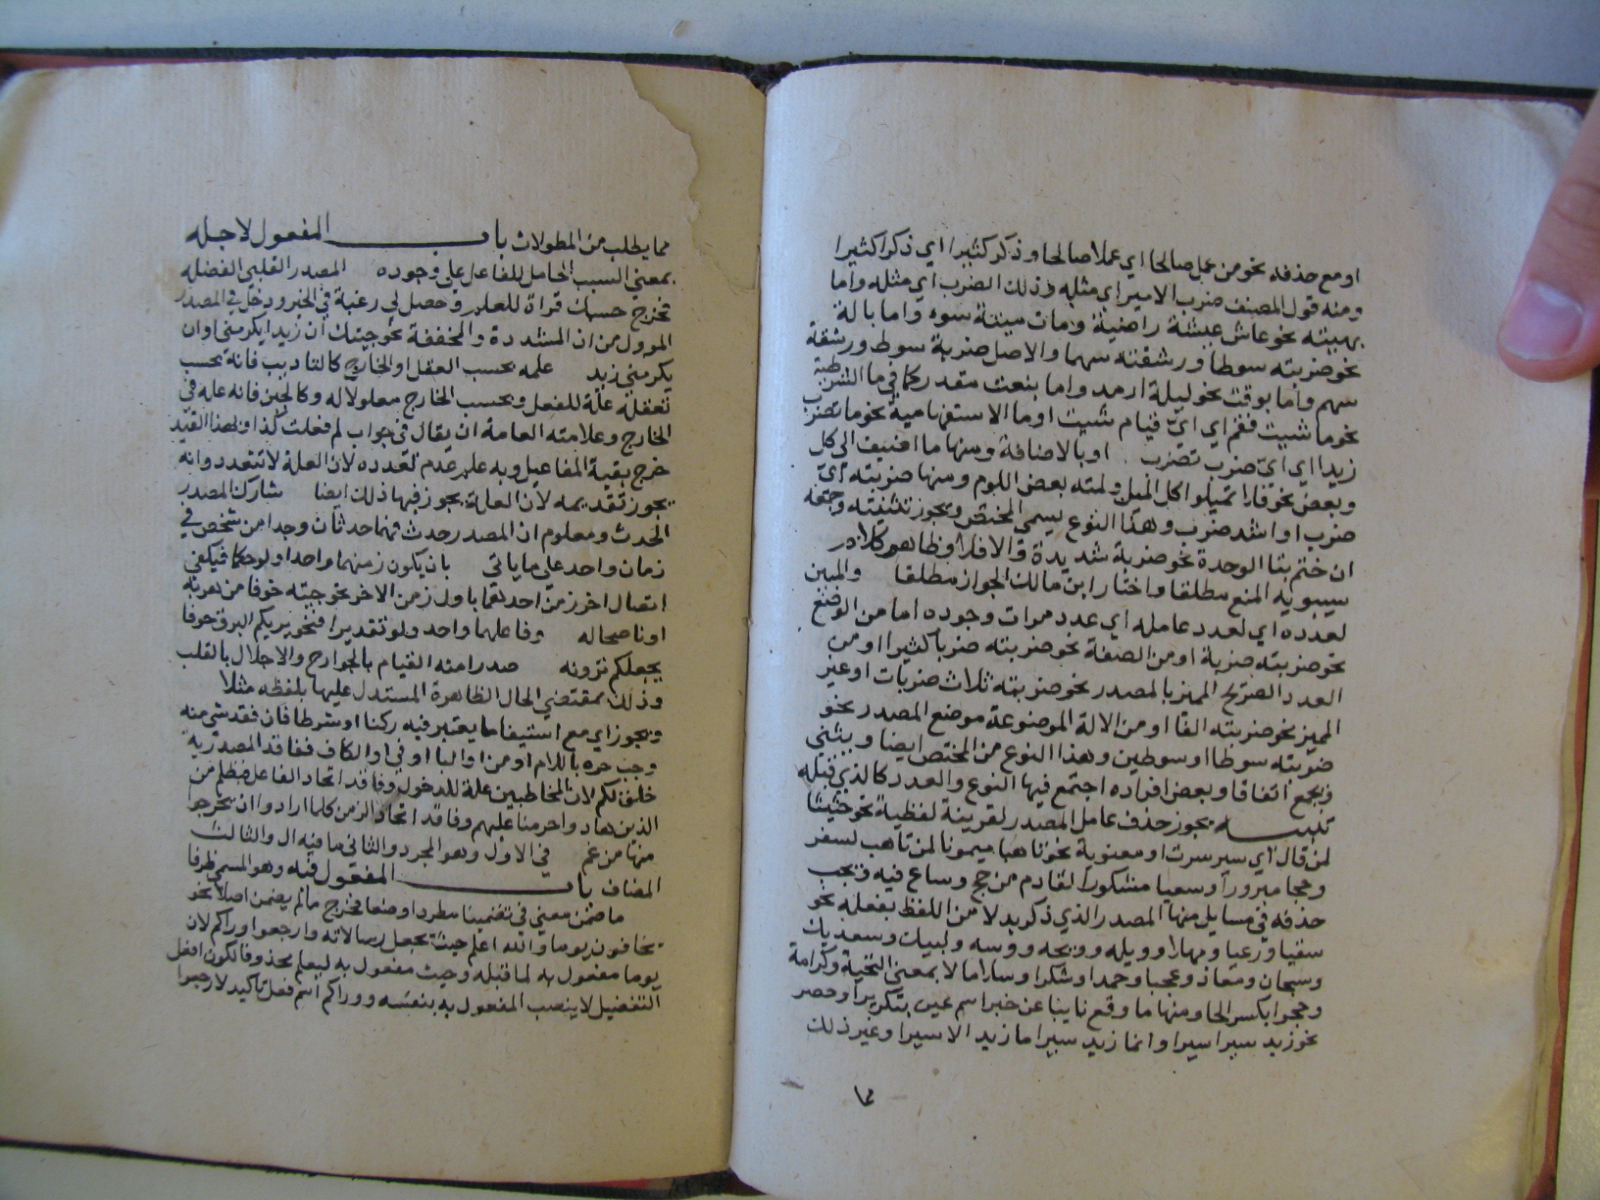 او مع حذفه نحو من عمل صالحا اي عملا صالحا وذكر كثيرا اي ذكرا كثيرا
ومنه قول المصنف ضرب الامير اي مثله وذلك الضرب اي مثله واما
بهيئته نحو عاش عيشة راضية ومات ميتة سوء واما بالة
نحو ضربته سوطا ورشقته سهما والاصل ضربة سوط ورشقة
سهم واما بوقت نحو ليلة ارمد واما بنعت مقدر كما في ما الشرطية
نحو ما شيت فقم اي ايّ قيام شيت او ما الاستفهامية نحو ما تضرب
زيدا اي ايّ ضرب تضرب او بالاضافة ومنها ما اضيف الى كل
وبعض نحو فلا تميلوا كل الميل ولمته بعض اللوم ومنها ضربته ايّ
ضرب او اشد ضرب وهذا النوع يسمى المختص ويجوز تثنيته وجمعه
ان ختم بتا الوحدة نحو ضربة شديدة والا فلا وظاهر كلام
سيبويه المنع مطلقا واختار ابن مالك الجواز مطلقا والمبين
لعدده اي لعدد عامله اي عدد مرات وجوده اما من الوضع
نحو ضربته ضربة او من الصفة نحو ضربته ضربا كثيرا او من
العدد الصريح المميز بالمصدر نحو ضربته ثلاث ضربات او غير
المميز نحو ضربته الفا او من الالة الموضوعة موضع المصدر نحو
ضربته سوطا او سوطين وهذا النوع من المختص ايضا ويثنى
ويجمع اتفاقا وبعض افراده اجتمع فيها النوع والعدد كالذي قبله
تنبيه يجوز حذف عامل المصدر لقرينة لفظية نحو حثيثا
لمن قال اي سير سرت او معنوية نحو تاهبا ميمونا لمن تاهب لسفر
وحجا مبرورا وسعيا مشكورا لقادم من حج وساع فيه ويجب
حذفه في مسايل منها المصدر الذي ذكر بدلا من اللفظ بفعله نحو
سقيا ورعيا ومهلا وويله وويحه وويسه ولبيك وسعديك
وسبحان ومعاذ وعجبا وحمدا وشكرا وسلاما لا بمعنى التحية وكرامة
وحجرا بكسر الحا ومنها ما وقع نايبا عن خبر اسم عين بتكرير او حصر
نحو زيد سيرا سيرا وانما زيد سيرا ما زيد الا سيرا وغير ذلك
مما يطلب من المطولات باب المفعول لاجله
بمعنى السبب الحامل للفاعل على وجوده المصدر القلبي الفضله
تخرج حسبك قراة للعلم وحصل لي رغبة في الخير ودخل في المصدر
الموول من ان المشددة والمخففة نحو جيتك ان زيدا يكرمني او ان
يكرمني زيد علمه بحسب العقل او الخارج كالتاديب فانه بحسب
تعقله علة للفعل وبحسب الخارج معلولا له وكالجبن فانه علة في
الخارج وعلامته العامة ان يقال في جواب لم فعلت كذا وبهذا القيد
خرج بقية المفاعيل وبه علم عدم تعدده لان العلة لا تتعدد وانه
يجوز تقديمه لان العلة يجوز فيها ذلك ايضا شارك المصدر
الحدث ومعلوم ان المصدر حدث فهما حدثان وجدا من شخص في
زمان واحد على ما ياتي بان يكون زمنهما واحدا ولو حكما فيكفي
اتصال اخر زمن احدهما باول زمن الاخر نحو جيته خوفا من هربه
او ناصحا له وفاعلهما واحد ولو تقديرا فنحو يريكم البرق خوفا
يجعلكم ترونه صدرا منه القيام بالجوارح والاجلال بالقلب
وذلك بمقتضى الحال الظاهرة المستدل عليها بلفظه مثلا
ويجوز اي مع استيفا ما يعتبر فيه ركنا او شرطا فان فقد شي منه
وجب جره باللام او من او البا او في او الكاف ففاقد المصدرية
خلق لكم لان المخاطبين علة للدخول وفاقد اتحاد الفاعل فبظلم من
الذين هادوا حرمنا عليهم وفاقد اتحاد الزمن كلما ارادوا ان يخرجوا
منها من غم في الاول وهو المجرد والثاني ما فيه ال والثالث
المضاف باب المفعول فيه وهو المسمى ظرفا
ما ضمن معنى في تضمينا مطردا وضعا مخرج ما لم يضمن اصلا نحو
يخافون يوما والله اعلم حيث يجعل رسالاته وارجعوا وراكم لان
يوما مفعول به لما قبله وحيث مفعول به ليعلم محذوفا لكون افعل
التفضيل لا ينصب المفعول به بنفسه ووراكم اسم فعل تاكيد لارجعوا